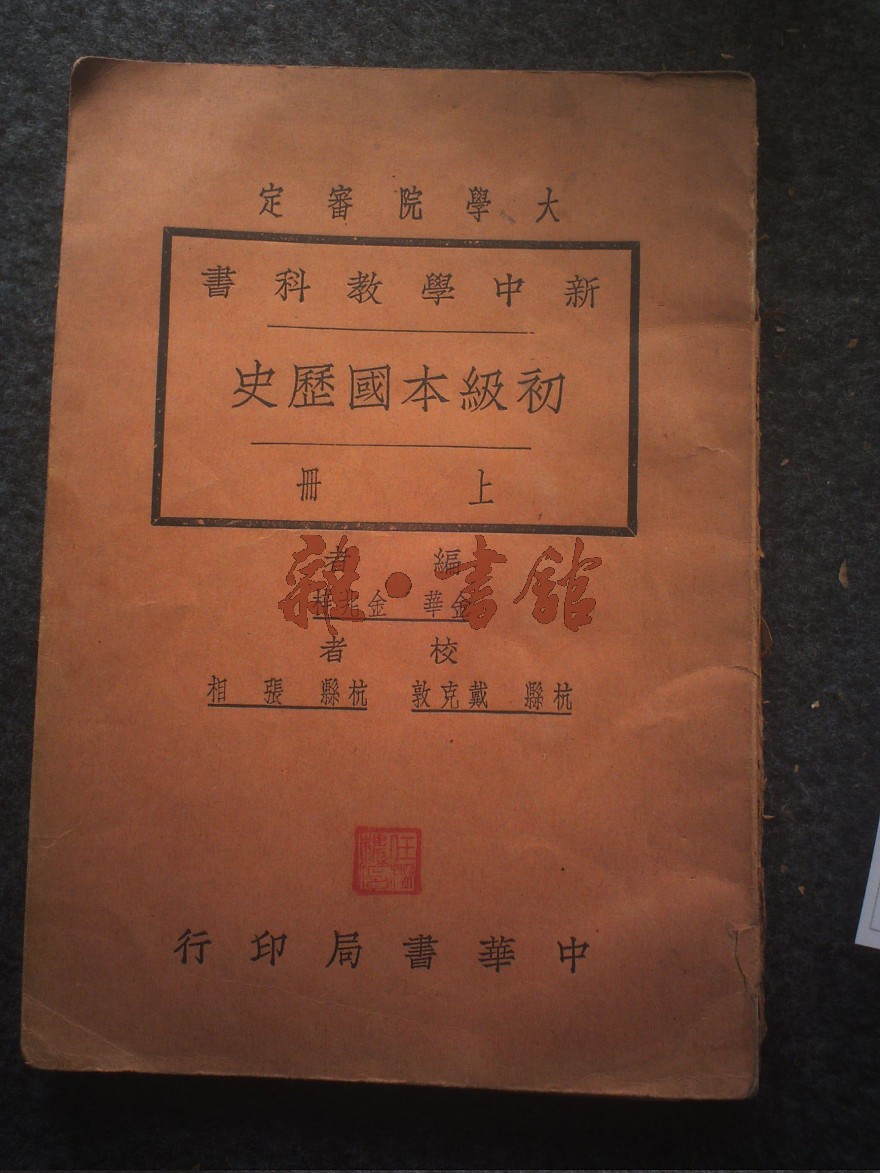 大學院審定
新中學教科書
初級本國歷史
上冊
編者
金華 金兆梓
校者
杭縣 戴克敦 杭縣 張相
中華書局印行
雜·書館